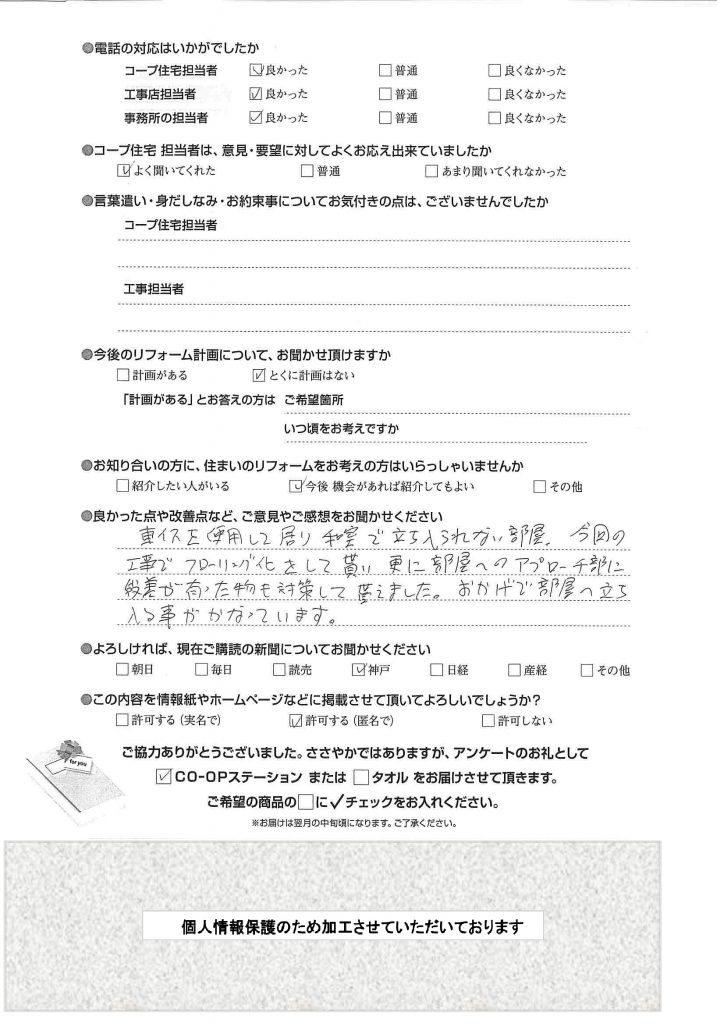 ●電話の対応はいかがでしたか
コープ住宅担当者 ☑良かった □普通 □良くなかった
工事店担当者 ☑良かった □普通 □良くなかった
事務所の担当者 ☑良かった □普通 □良くなかった
●コープ住宅 担当者は、意見・要望に対してよくお応え出来ていましたか
☑よく聞いてくれた □普通 □あまり聞いてくれなかった
●言葉遣い・身だしなみ・お約束事についてお気付きの点は、ございませんでしたか
コープ住宅担当者
工事担当者
●今後のリフォーム計画について、お聞かせ頂けますか
□計画がある ☑とくに計画はない
「計画がある」とお答えの方は ご希望箇所
いつ頃をお考えですか
●お知り合いの方に、住まいのリフォームをお考えの方はいらっしゃいませんか
□紹介したい人がいる ☑今後 機会があれば紹介してもよい □その他
●良かった点や改善点など、ご意見やご感想をお聞かせください
車イスを使用して居り 和室で立ち入られない部屋。今回の
工事でフローリング化をして貰い 更に部屋へのアプローチ部に
段差が有った物も対策して貰えました。おかげで部屋へ立ち
入る事がかなっています。
●よろしければ、現在ご購読の新聞についてお聞かせください
□朝日 □毎日 □読売 ☑神戸 □日経 □産経 □その他
●この内容を情報紙やホームページなどに掲載させて頂いてよろしいでしょうか?
□許可する(実名で) ☑許可する(匿名で) □許可しない
for you
ご協力ありがとうございました。ささやかではありますが、アンケートのお礼として
☑CO-OPステーション または □タオル をお届けさせて頂きます。
ご希望の商品の□に✓チェックをお入れください。
※お届けは翌月の中旬頃になります。ご了承ください。
個人情報保護のため加工させていただいております